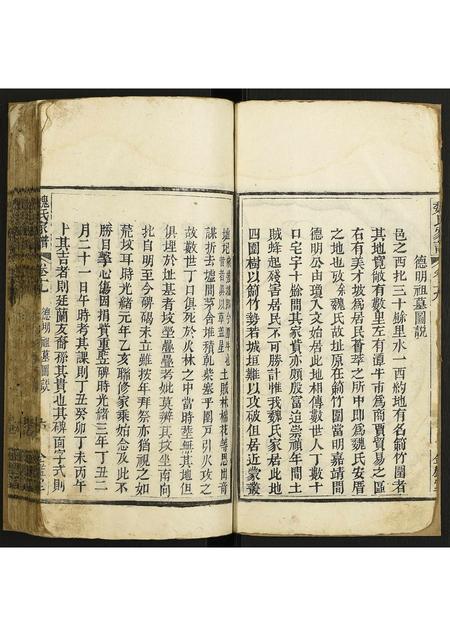 德明祖墓圖說
邑之西北三十餘里水一西約地有名簕竹圍者
其地寬敞有數里左有潭牛市爲商賈貿易之區
右有美才坡爲居民薈萃之所中即爲魏氏安厝
之地也攷魏氏故址原在簕竹圍當明嘉靖間
德明公由瓊入文始居此地相傳數世人丁數十
口宅宇十餘間其家貲亦頗殷富迫崇禎年間土
賊蜂起殘害居民不可勝計惟我魏氏家居此地
四圍樹以簕竹勢若城垣難以攻破但居近蒙叢
墟
土賊林 桃花等思出音
謀折去墟間茅舍堆積亂柴塞乎圍刀引火攻之
故數世丁口俱死於火林之中當時塋無其地但
俱埋於址基者坟壘疊考妣莫辨其坟坐南向
北自明至今碑碣未立雖按年拜祭亦猶視之如
荒坟耳時光緒元年乙亥聯修家乘始念及此不
勝目擊心傷因捐貲重竪碑時光緒三年丁丑二
月二十一日午時考其課則丁丑癸卯丁未丙午
卜其吉者則廷蘭友裔孫其貴也其碑面字式則
魏氏家譜
卷九
德明祖墓圖說